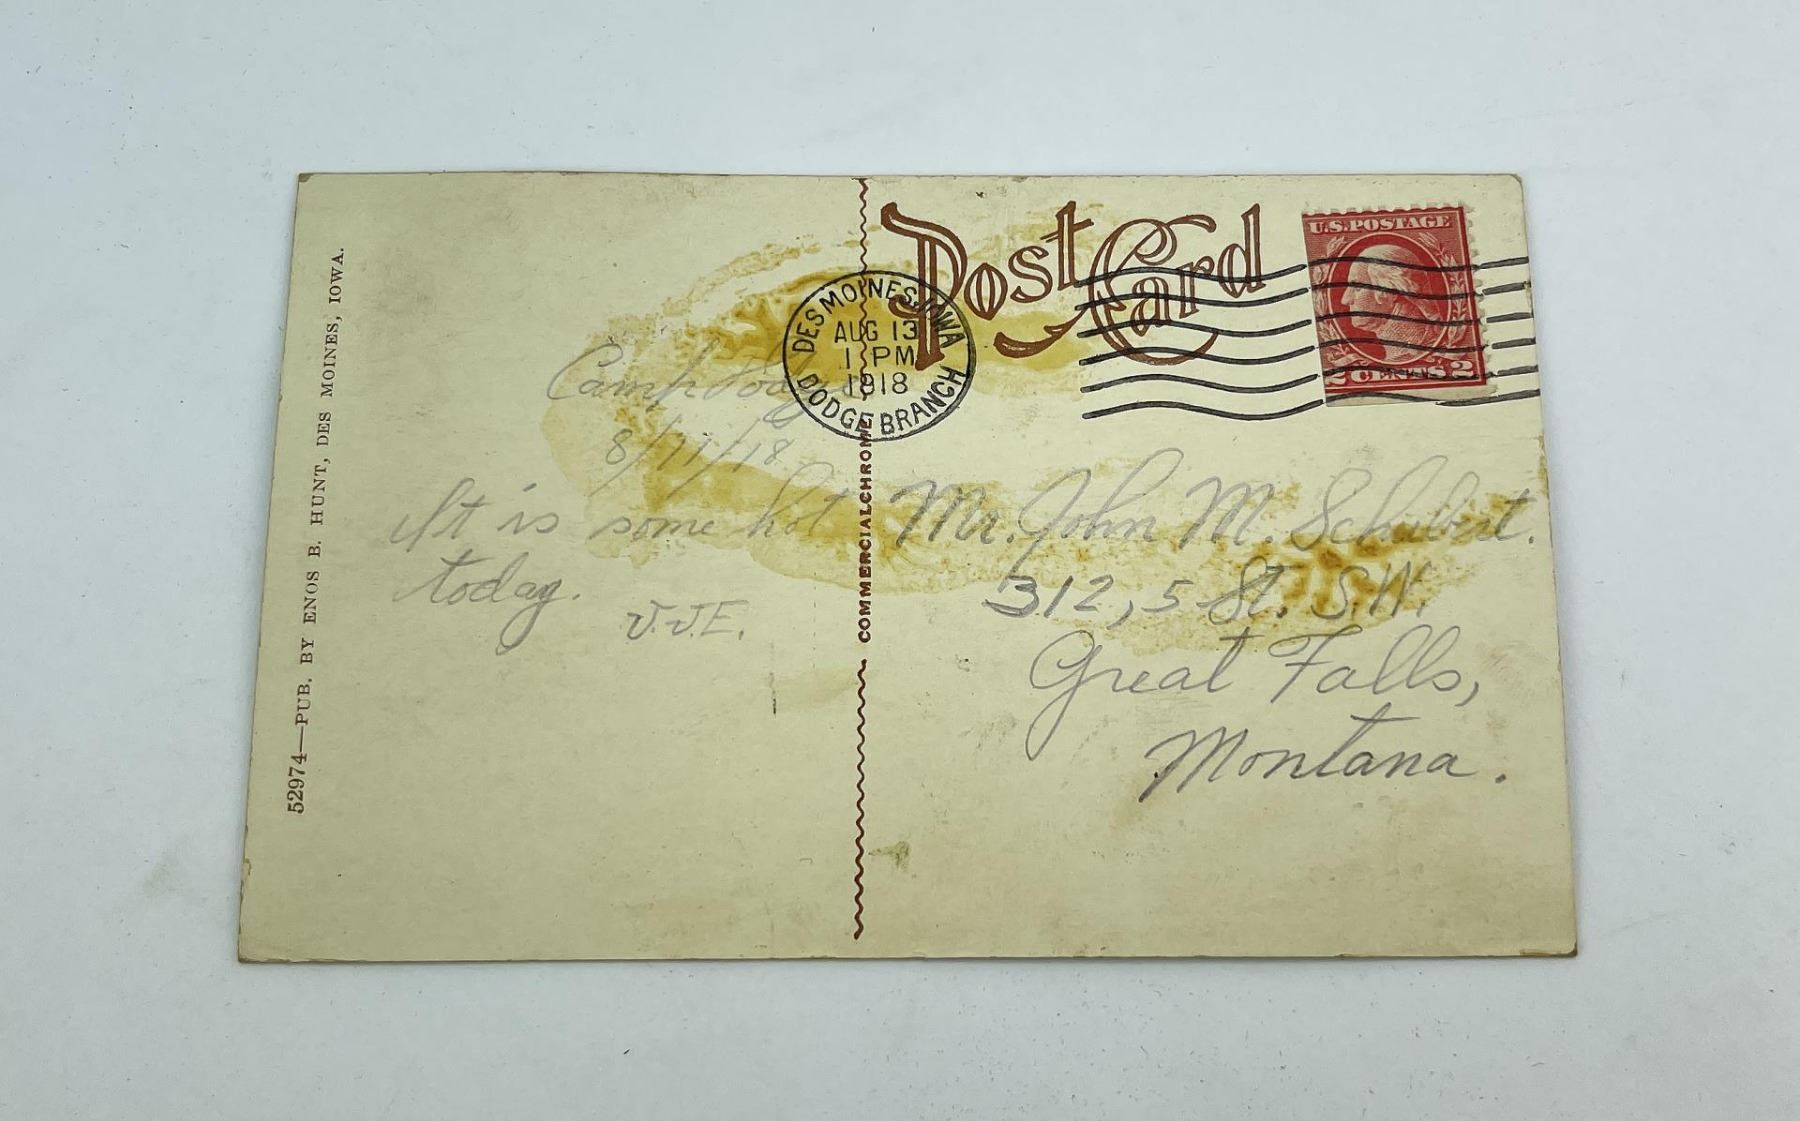 52974—PUB. BY ENOS B. HUNT, DES MOINES, IOWA.
Post Card
U.S. POSTAGE
2 CENTS 2
DES MOINES, IOWA
AUG 13
1 PM
1918
DODGE BRANCH
COMMERCIALCHROME
Camp Dodge
8/11/18
It is some hot
today.
V.V.E.
Mr. John M. Schubert.
312, 5 St. S.W.
Great Falls,
Montana.